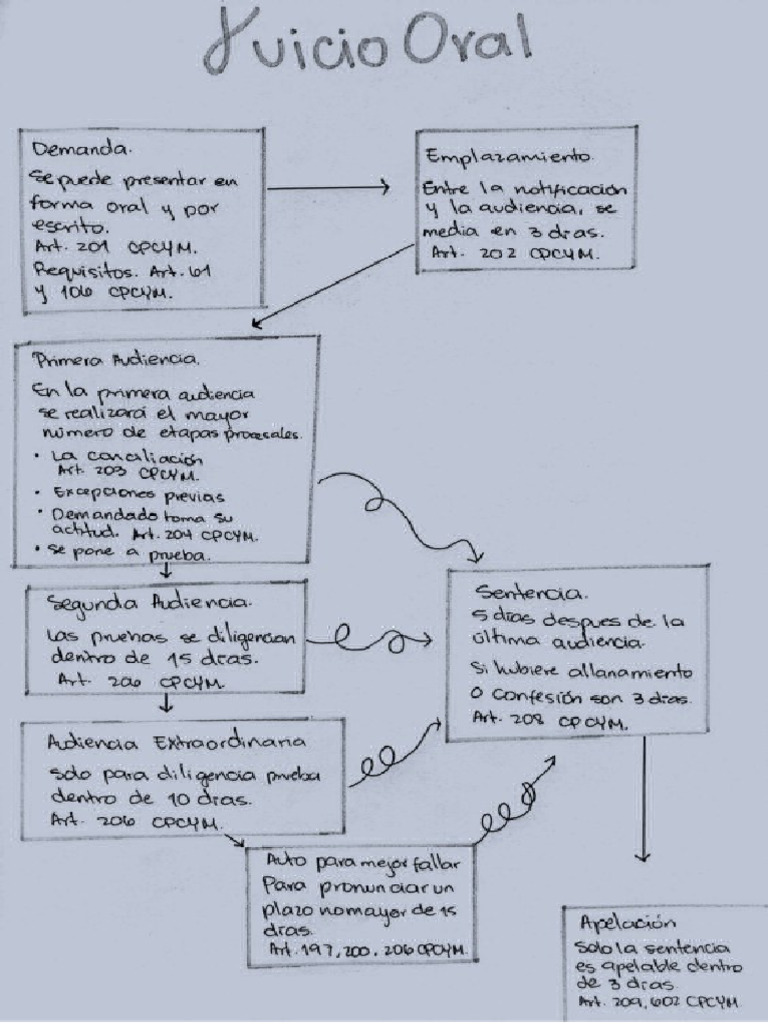 Juicio Oral
Demanda.
Se puede presentar en
forma oral y por
escrito.
Art. 201 CPCYM.
Requisitos. Art. 61
y 106 CPCYM.
Emplazamiento.
Entre la notificación
y la audiencia, se
media en 3 días.
Art. 202 CPCYM.
Primera Audiencia.
En la primera audiencia
se realizará el mayor
número de etapas procesales.
• La conciliación
Art. 203 CPCYM.
• Excepciones previas
• Demandado toma su
actitud. Art. 204 CPCYM.
• se pone a prueba.
Segunda Audiencia.
Las pruebas se diligencian
dentro de 15 días.
Art. 206 CPCYM.
Audiencia Extraordinaria
solo para diligencia prueba
dentro de 10 días.
Art. 206 CPCYM.
Auto para mejor fallar
Para pronunciar un
plazo no mayor de 15
días.
Art. 197, 200, 206 CPCYM.
Sentencia.
5 días despues de la
última audiencia.
Si hubiere allanamiento
o confesión son 3 días.
Art. 208 CPCYM.
Apelación
Solo la sentencia
es apelable dentro
de 3 días.
Art. 209, 602 CPCYM